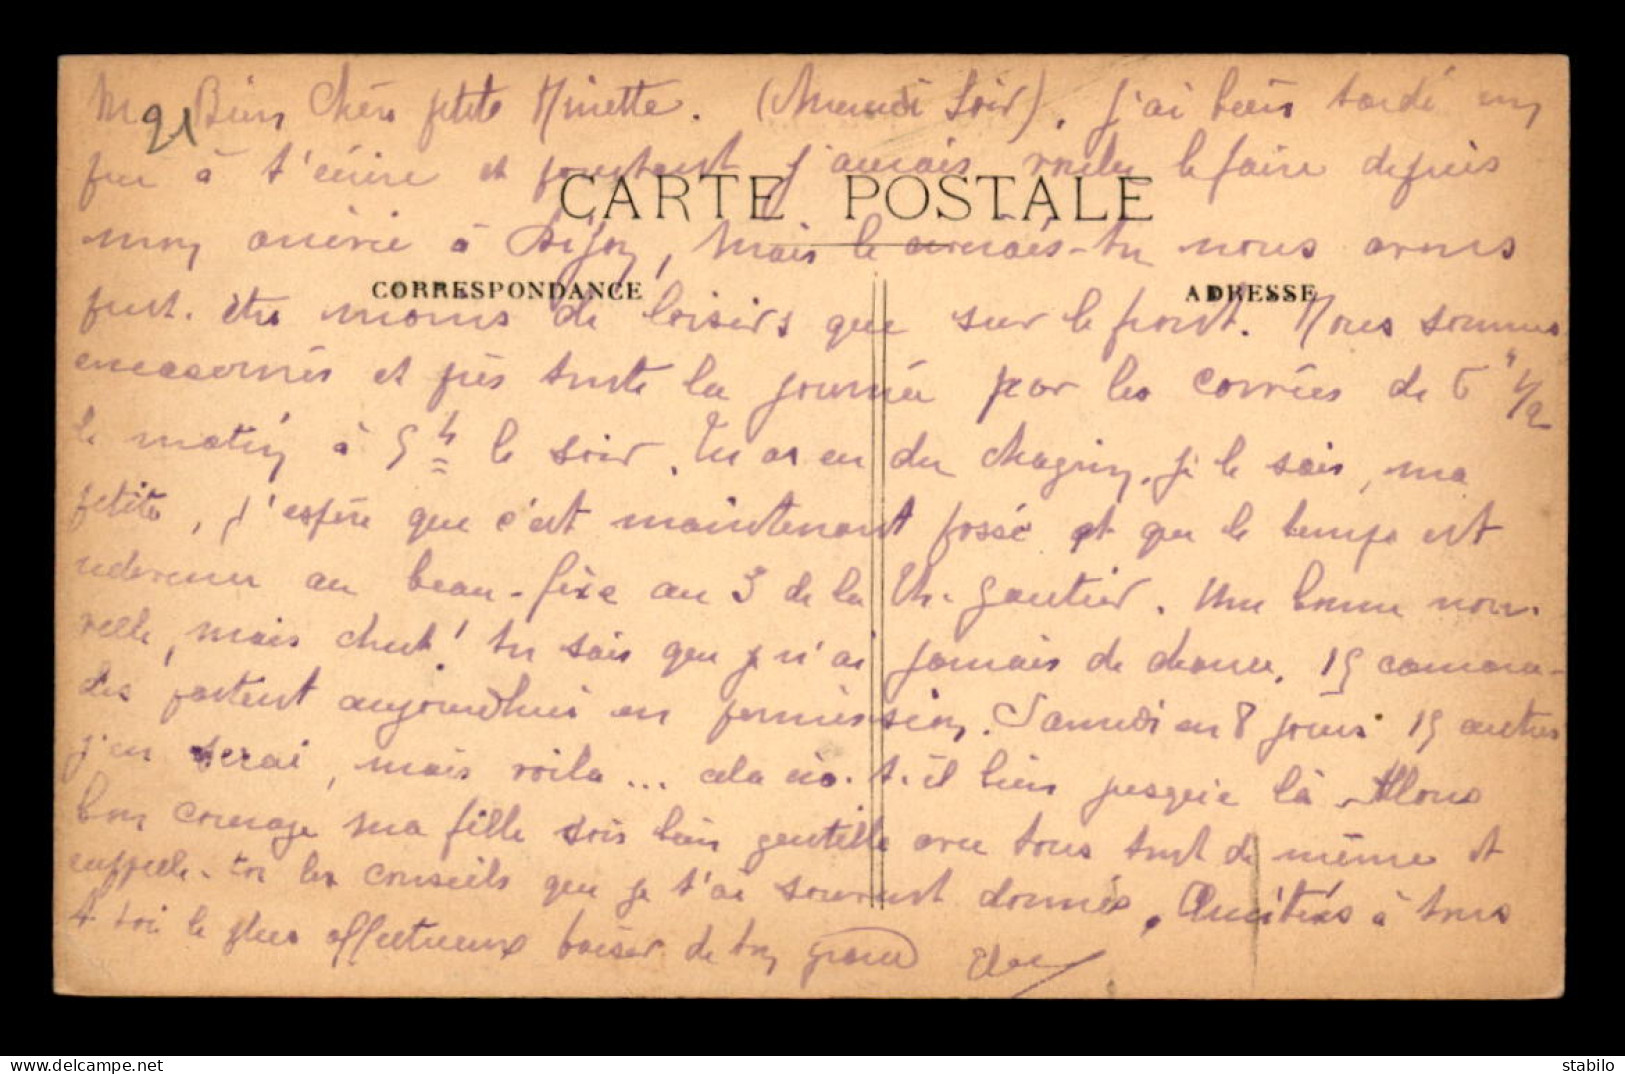 Ma Bien Chère petite Minette. (Mercredi Soir). J'ai bien tardé un
peu à t'écrire et pourtant j'aurais voulu le faire depuis
CARTE POSTALE
mon arrivée à Dijon, mais le croirais-tu nous avons
CORRESPONDANCE
ADRESSE
peut-être moins de loisirs que sur le front. Nous sommes
encasernés et pris toute la journée par les corvées de 5 h 1/2
le matin à 5 h le soir. Tu as eu du chagrin, je le sais, ma
petite, j'espère que c'est maintenant passé et que le temps est
redevenu au beau-fixe au 3 de la Th. Gautier. Une bonne nou-
velle, mais chut! tu sais que je n'ai jamais de chance. 15 camara-
des partent aujourd'hui en permission. Samedi en 8 jours 15 autres
j'en serai, mais voilà... cela ira-t-il bien jusque là. Allons
bon courage ma fille sois bien gentille avec tous tout de même et
rappelle-toi les conseils que je t'ai souvent donnés. Amitiés à tous
à toi le plus affectueux baiser de ton grand
91
stabilo